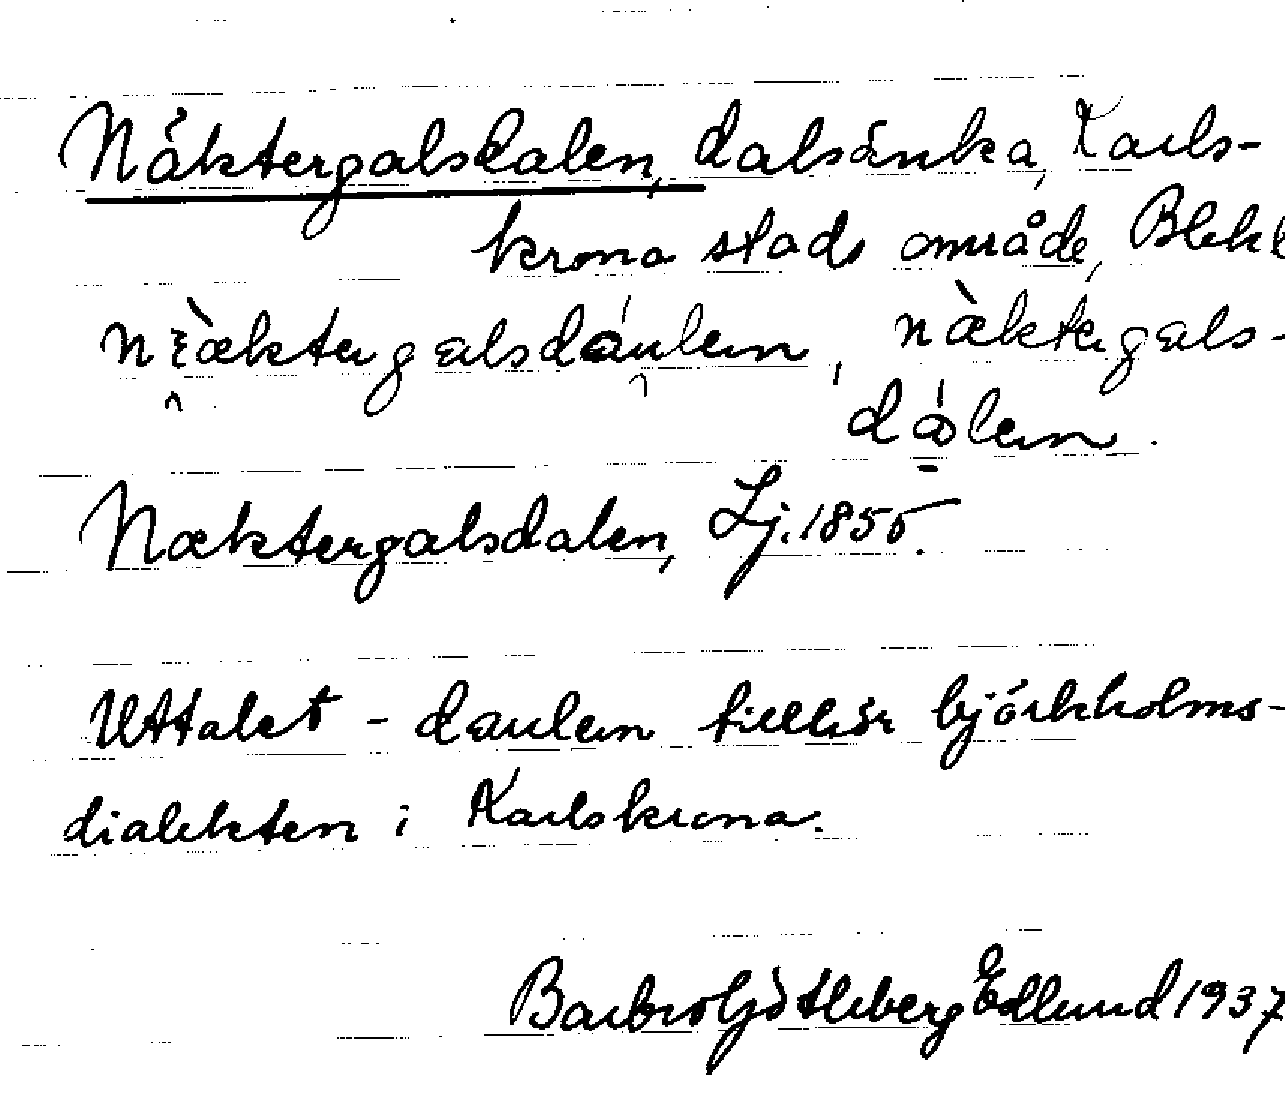 Näktergalsdalen, dalsänka, Karls-
krona stads område, Blek
nὰktergalsdaulen, nὰktergals-
dalen.
Næktergalsdalen, Lj. 1855.
Uttalet - daulen tillhör björkholms-
dialekten i Karlskrona.
Barbro Götleberg Edlund 1937